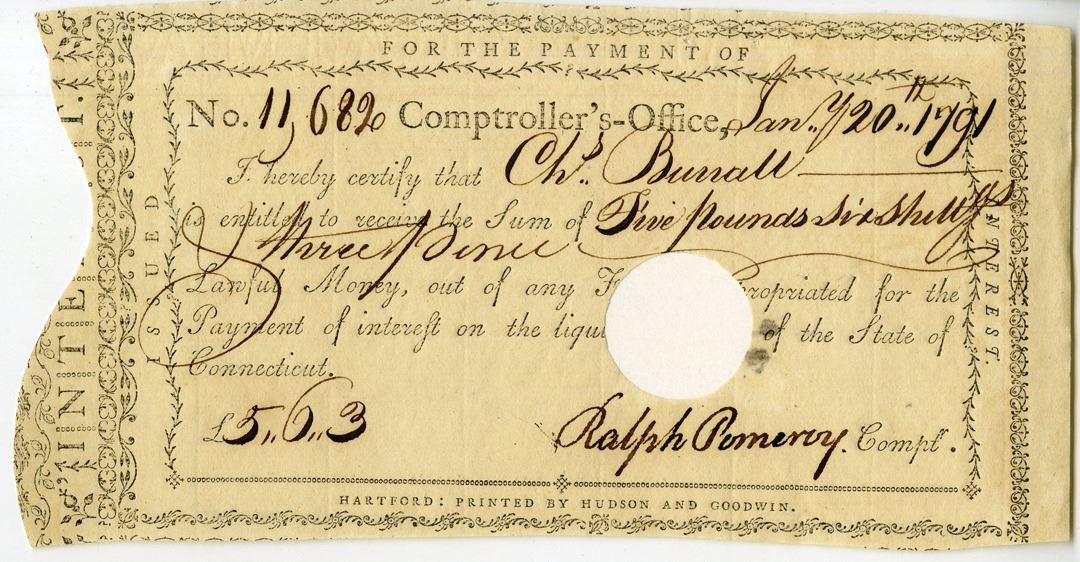 FOR THE PAYMENT OF
No. 11,682 Comptroller's-Office, Jan.y 20th 1791
I hereby certify that Chs. Burrall
is entitled to receive the Sum of Five pounds six shill'gs
three pence
Lawful Money, out of any F ropriated for the
Payment of interest on the liqui of the State of
Connecticut.
£5,,6,,3 Ralph Pomeroy. Compt'.
HARTFORD: PRINTED BY HUDSON AND GOODWIN.
ISSUED
INTEREST.
INTE T.